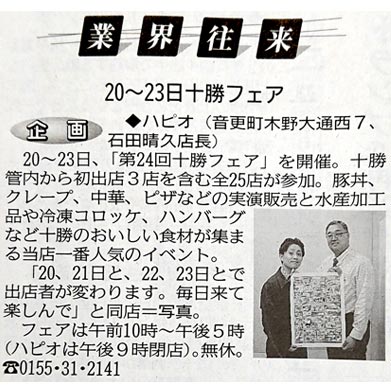 業界往来
20～23日十勝フェア
企画
◆ハピオ（音更町木野大通西７、
石田晴久店長）
20～23日、「第24回十勝フェア」を開催。十勝
管内から初出店３店を含む全25店が参加。豚丼、
クレープ、中華、ピザなどの実演販売と水産加工
品や冷凍コロッケ、ハンバーグ
など十勝のおいしい食材が集ま
る当店一番人気のイベント。
「20、21日と、22、23日とで
出店者が変わります。毎日来て
楽しんで」と同店＝写真。
フェアは午前10時～午後５時
（ハピオは午後９時閉店）。無休。
☎0155・31・2141